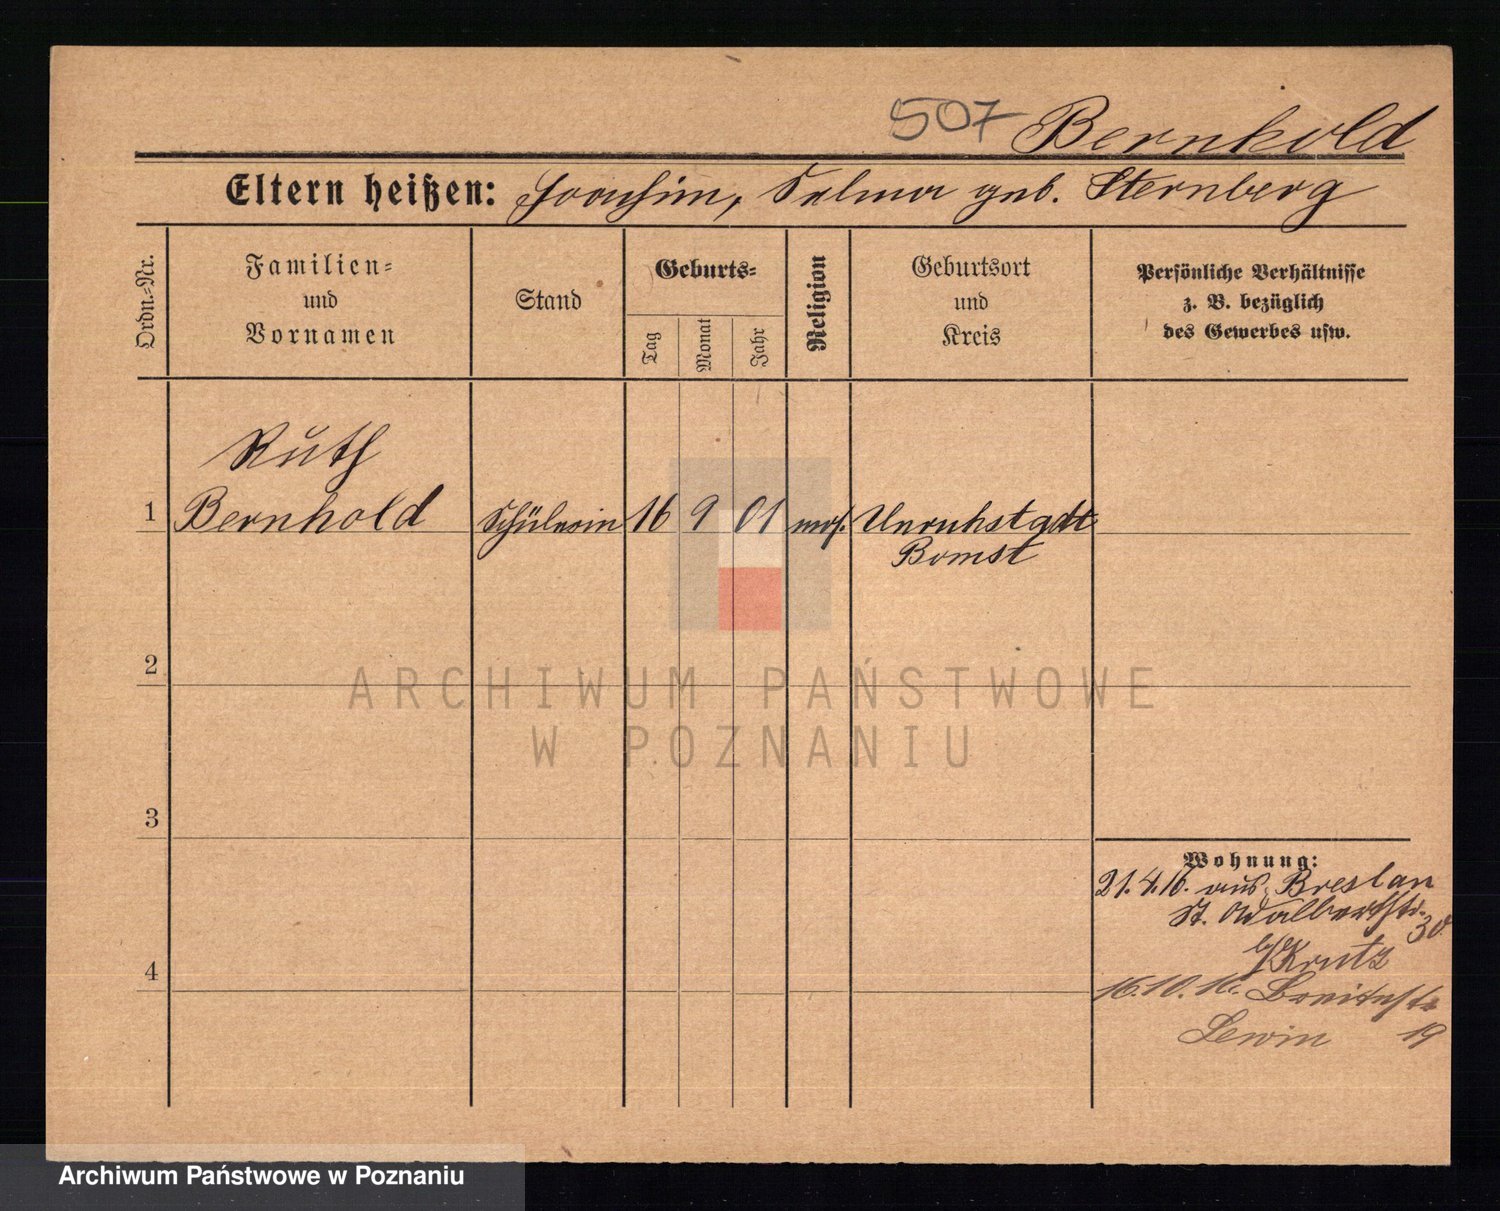 507 Bernhold
Eltern heißen: Joachim, Selma geb. Sternberg
Ordn.=Nr.
Familien=
und
Vornamen
Stand
Geburts=
Tag
Monat
Jahr
Religion
Geburtsort
und
Kreis
Persönliche Verhältnisse
z. B. bezüglich
des Gewerbes usw.
Ruth
1 Bernhold Schülerin 16 9 01 mos. Unruhstadt
Bomst
2
ARCHIWUM PAŃSTWOWE
W POZNANIU
3
Wohnung:
21.4.16. aus Breslau
St. Adalbertstr.
30
b/ Krutz
4
16.10.16. Breitestr
Lewin 19
Archiwum Państwowe w Poznaniu